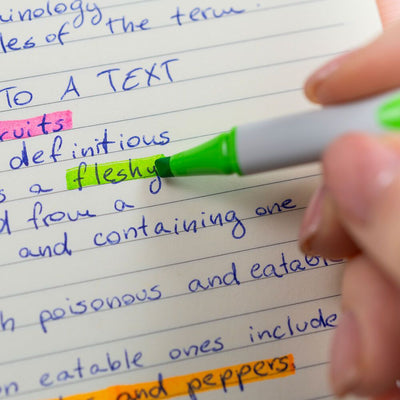 les of the term.
TO A TEXT
definitious
s a fleshy
from a
and containing one
poisonous and eatable
eatable ones include
and peppers.